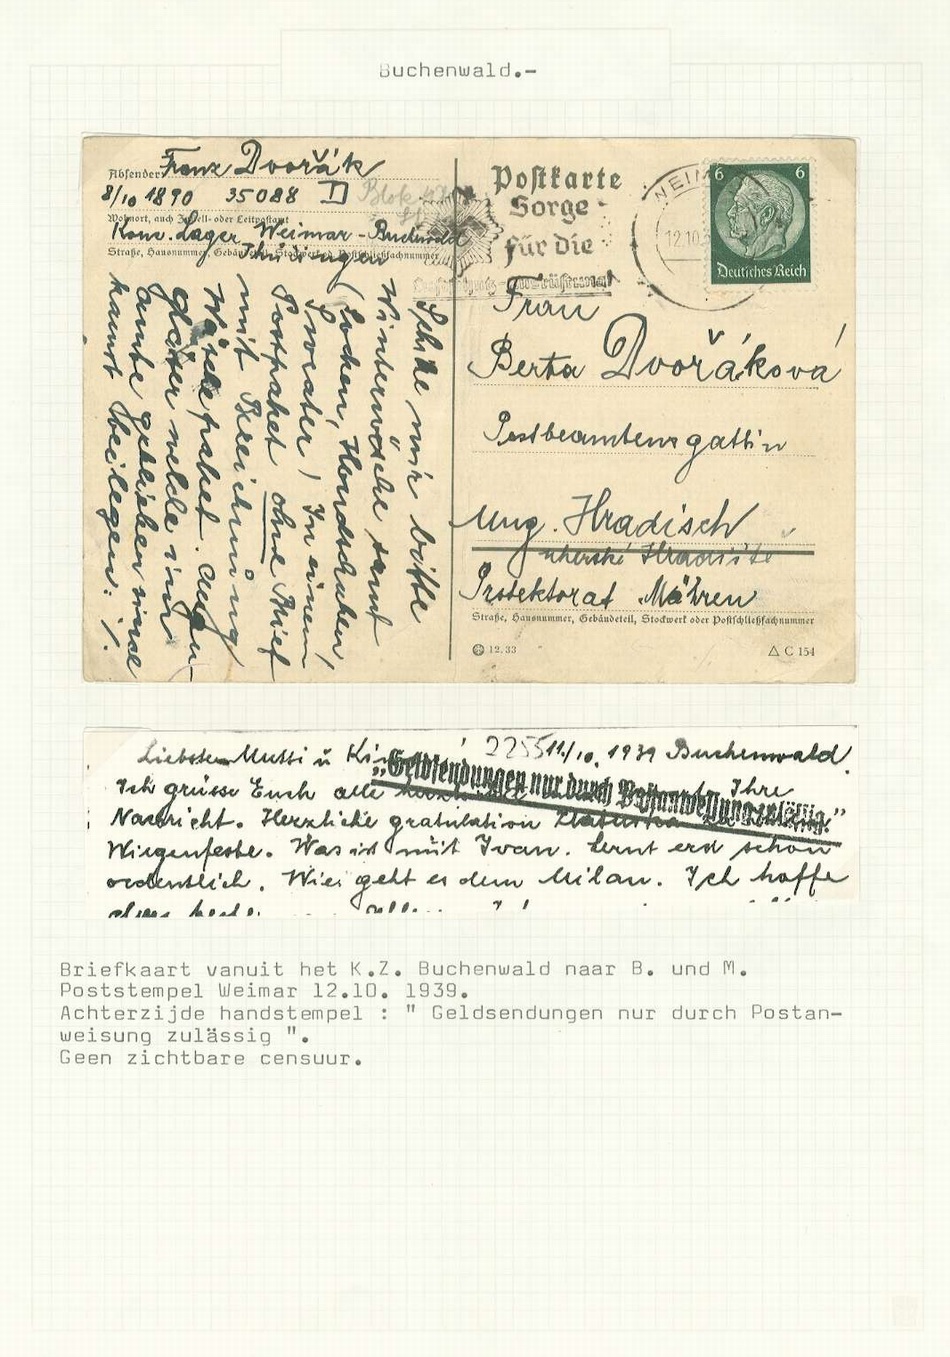 Buchenwald.-
Absender: Franz Dvořák
8/10 1890 35088 II Blok
Wohnort, auch Zustell- oder Leitpostamt
Konz. Lager Weimar - Buchenwald
Thüringen
Straße, Hausnummer, Gebäudeteil, Stockwerk od. Postschließfachnummer
Schicke mir bitte
Winterwäsche samt
Socken, Handschuhen,
Sweater, In einem
Postpaket ohne Brief
mit Bezeichnung
Wäschepaket. Augen-
gläser welche im
Amte geblieben sind
kannst beilegen. ·/.
Postkarte
Sorge
für die
WEIM
12.10.3
6 6
Deutsches Reich
Frau
Berta Dvořáková
Postbeamtensgattin
Ung. Hradisch
Uherské Hradiště
Protektorat Mähren
Straße, Hausnummer, Gebäudeteil, Stockwerk oder Postschließfachnummer
12.33
C 154
Liebste Mutti u Kin 2255 11./10. 1939 Buchenwald.
"Geldsendungen nur durch Postanweisung zulässig."
Ich grüsse Euch alle Ihre
Nachricht. Herzliche gratulation
Wiegenfeste. Was ist mit Ivan. Lernt er schon
ordentlich. Wie geht es dem Milan. Ich hoffe
Briefkaart vanuit het K.Z. Buchenwald naar B. und M.
Poststempel Weimar 12.10. 1939.
Achterzijde handstempel : " Geldsendungen nur durch Postan-
weisung zulässig ".
Geen zichtbare censuur.